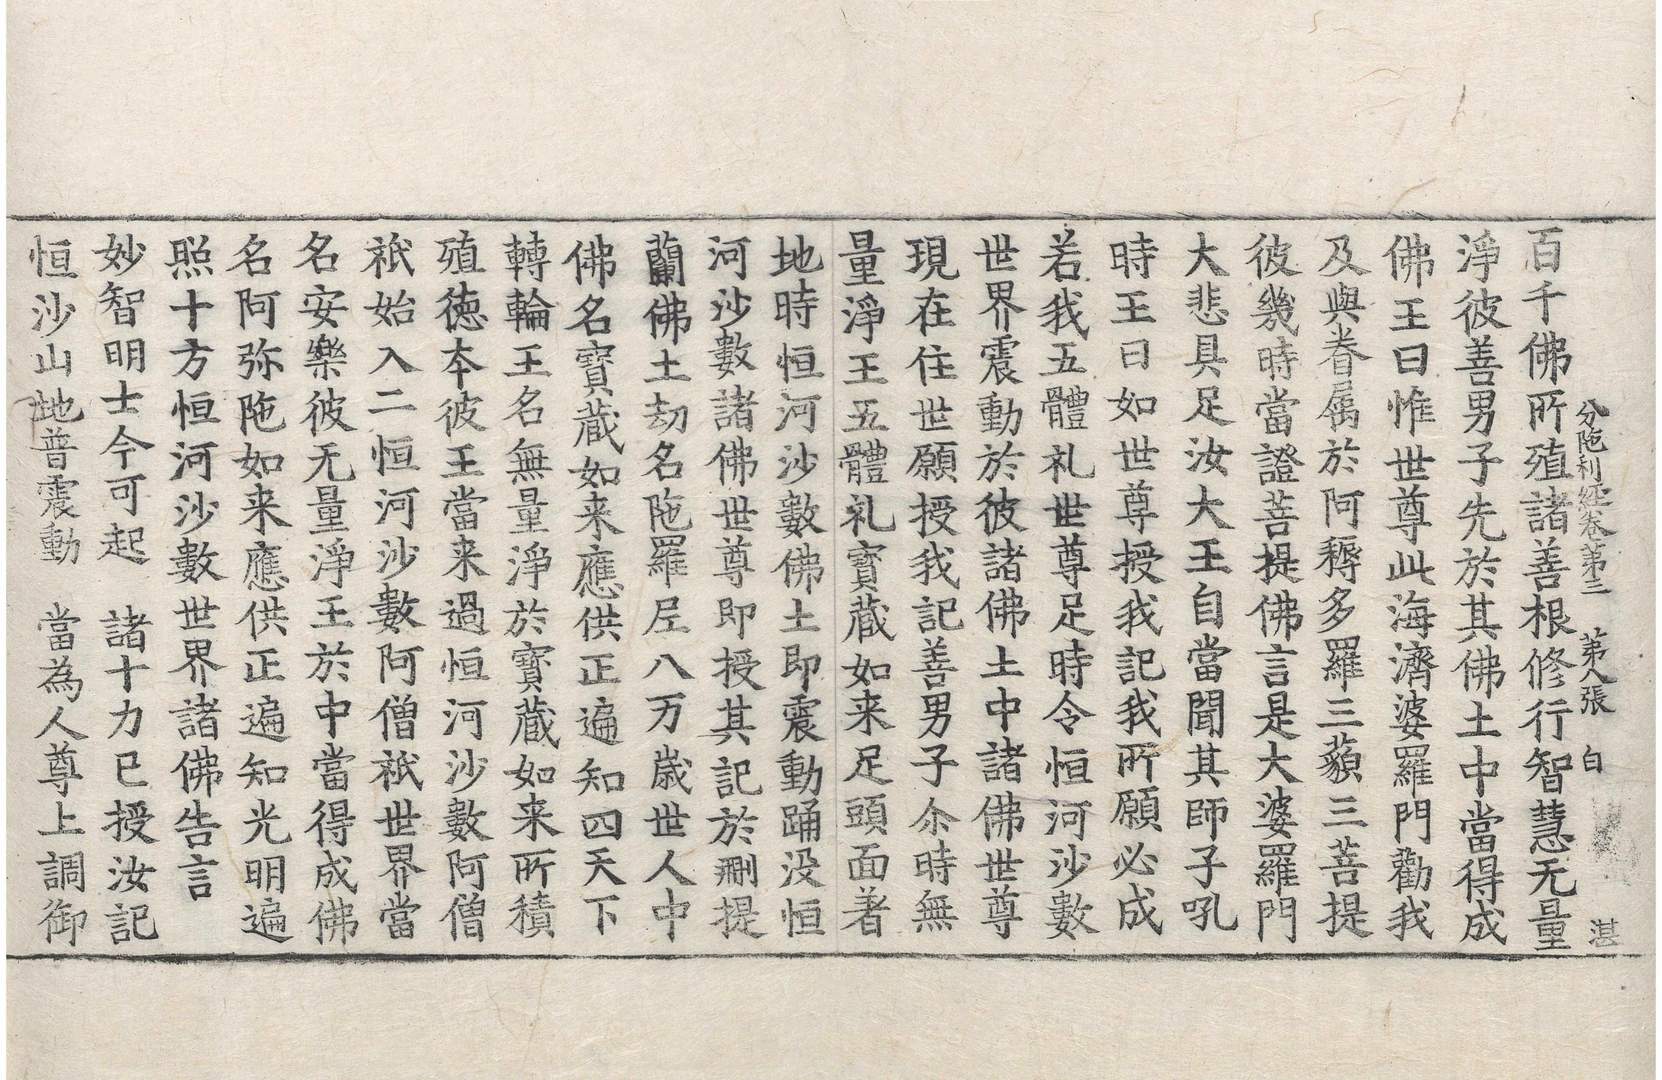 分陁利経卷第三 第八張 白 湛
百千佛所殖諸善根修行智慧无量
淨彼善男子先於其佛土中當得成
佛王曰惟世尊此海濟婆羅門勸我
及與眷属於阿耨多羅三藐三菩提
彼幾時當證菩提佛言是大婆羅門
大悲具足汝大王自當聞其師子吼
時王曰如世尊授我記我所願必成
若我五體礼世尊足時令恒河沙數
世界震動於彼諸佛土中諸佛世尊
現在住世願授我記善男子尒時無
量淨王五體礼寳蔵如来足頭面著
地時恒河沙數佛土即震動踊没恒
河沙數諸佛世尊即授其記於刪提
蘭佛土刧名陁羅𡰱八万歳世人中
佛名寳蔵如来應供正遍知四天下
轉輪王名無量淨於寳蔵如来所積
殖徳夲彼王當来過恒河沙數阿僧
祇始入二恒河沙數阿僧祇世界當
名安樂彼无量淨王於中當得成佛
名阿弥陁如来應供正遍知光明遍
照十方恒河沙數世界諸佛告言
妙智明士今可起 諸十力已授汝記
恒沙山地普震動 當為人尊上調御